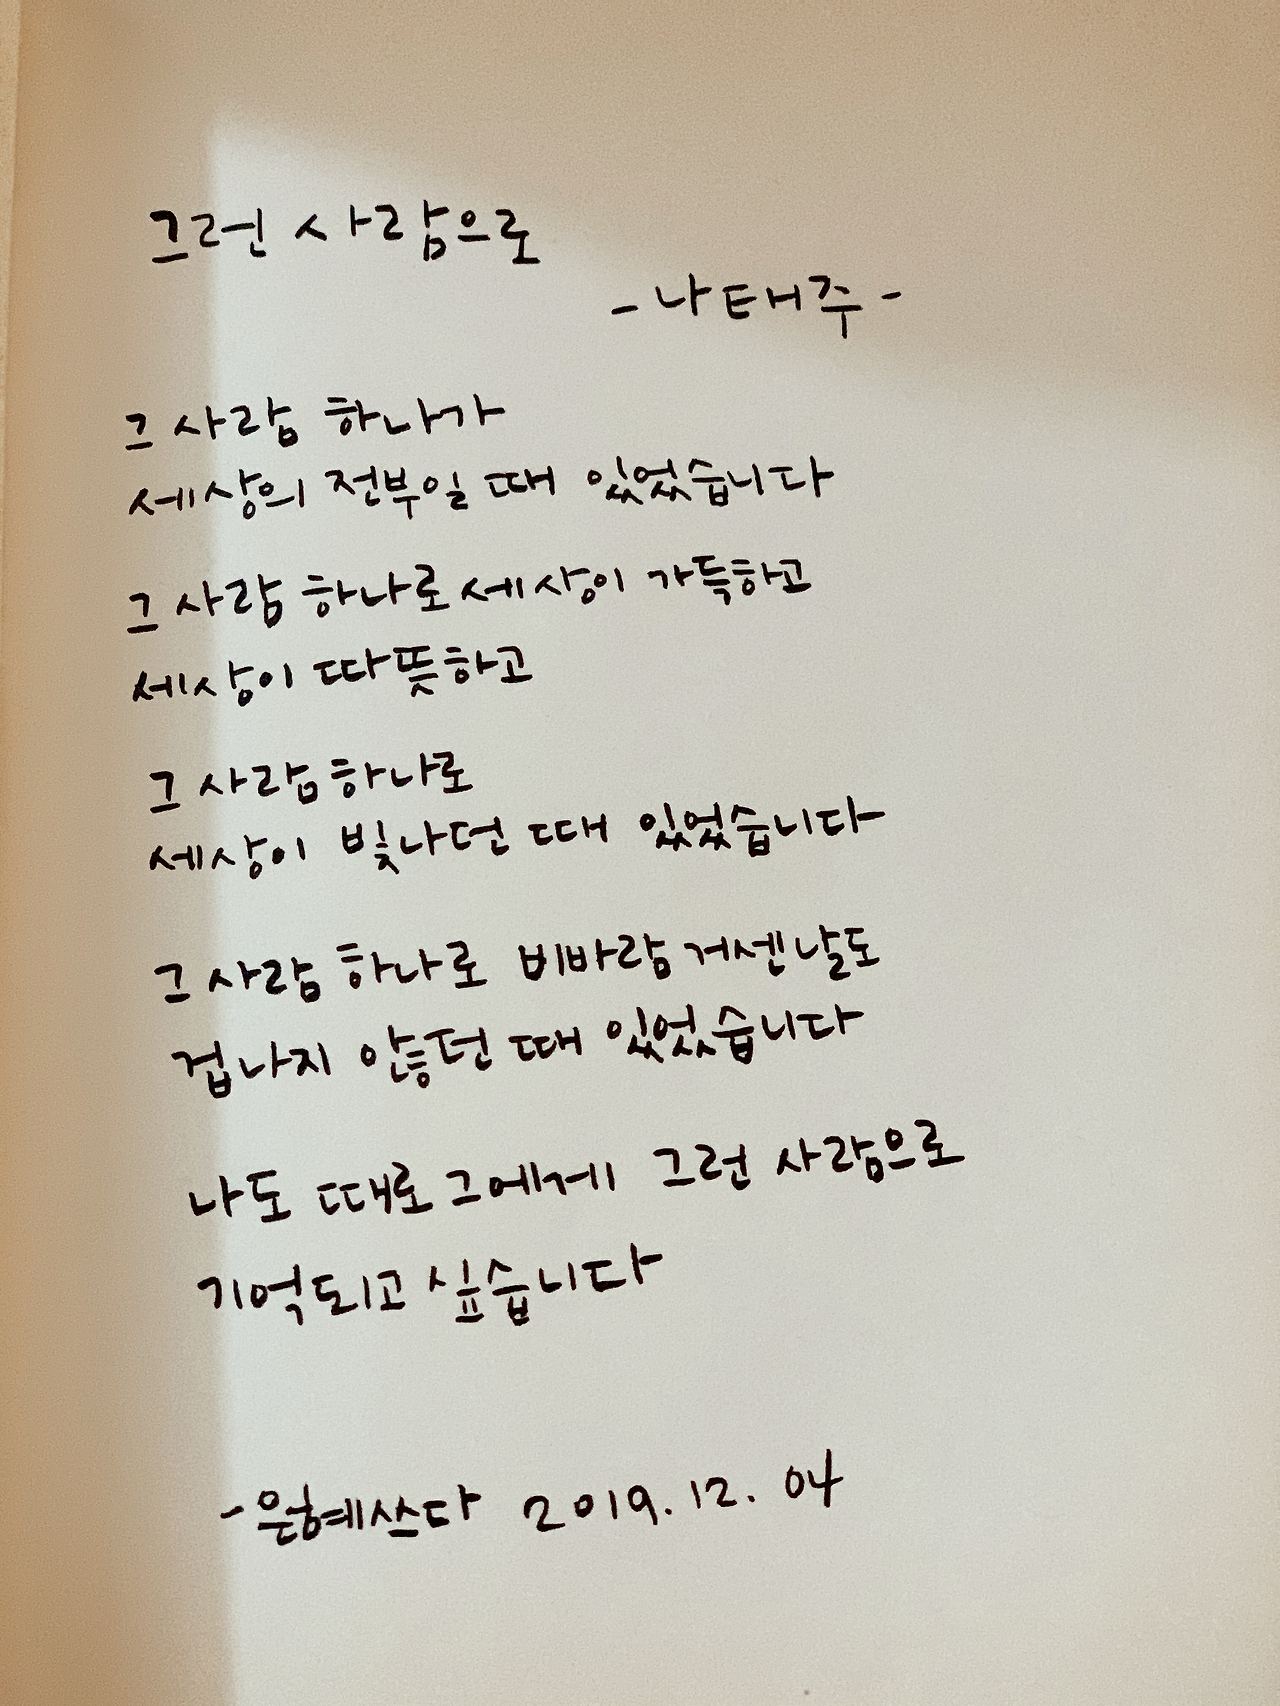 그런 사람으로
- 나태주 -
그 사람 하나가
세상의 전부일 때 있었습니다
그 사람 하나로 세상이 가득하고
세상이 따뜻하고
그 사람 하나로
세상이 빛나던 때 있었습니다
그 사람 하나로 비바람 거센 날도
겁나지 않던 때 있었습니다
나도 때로 그에게 그런 사람으로
기억되고 싶습니다
- 은혜쓰다 2019. 12. 04